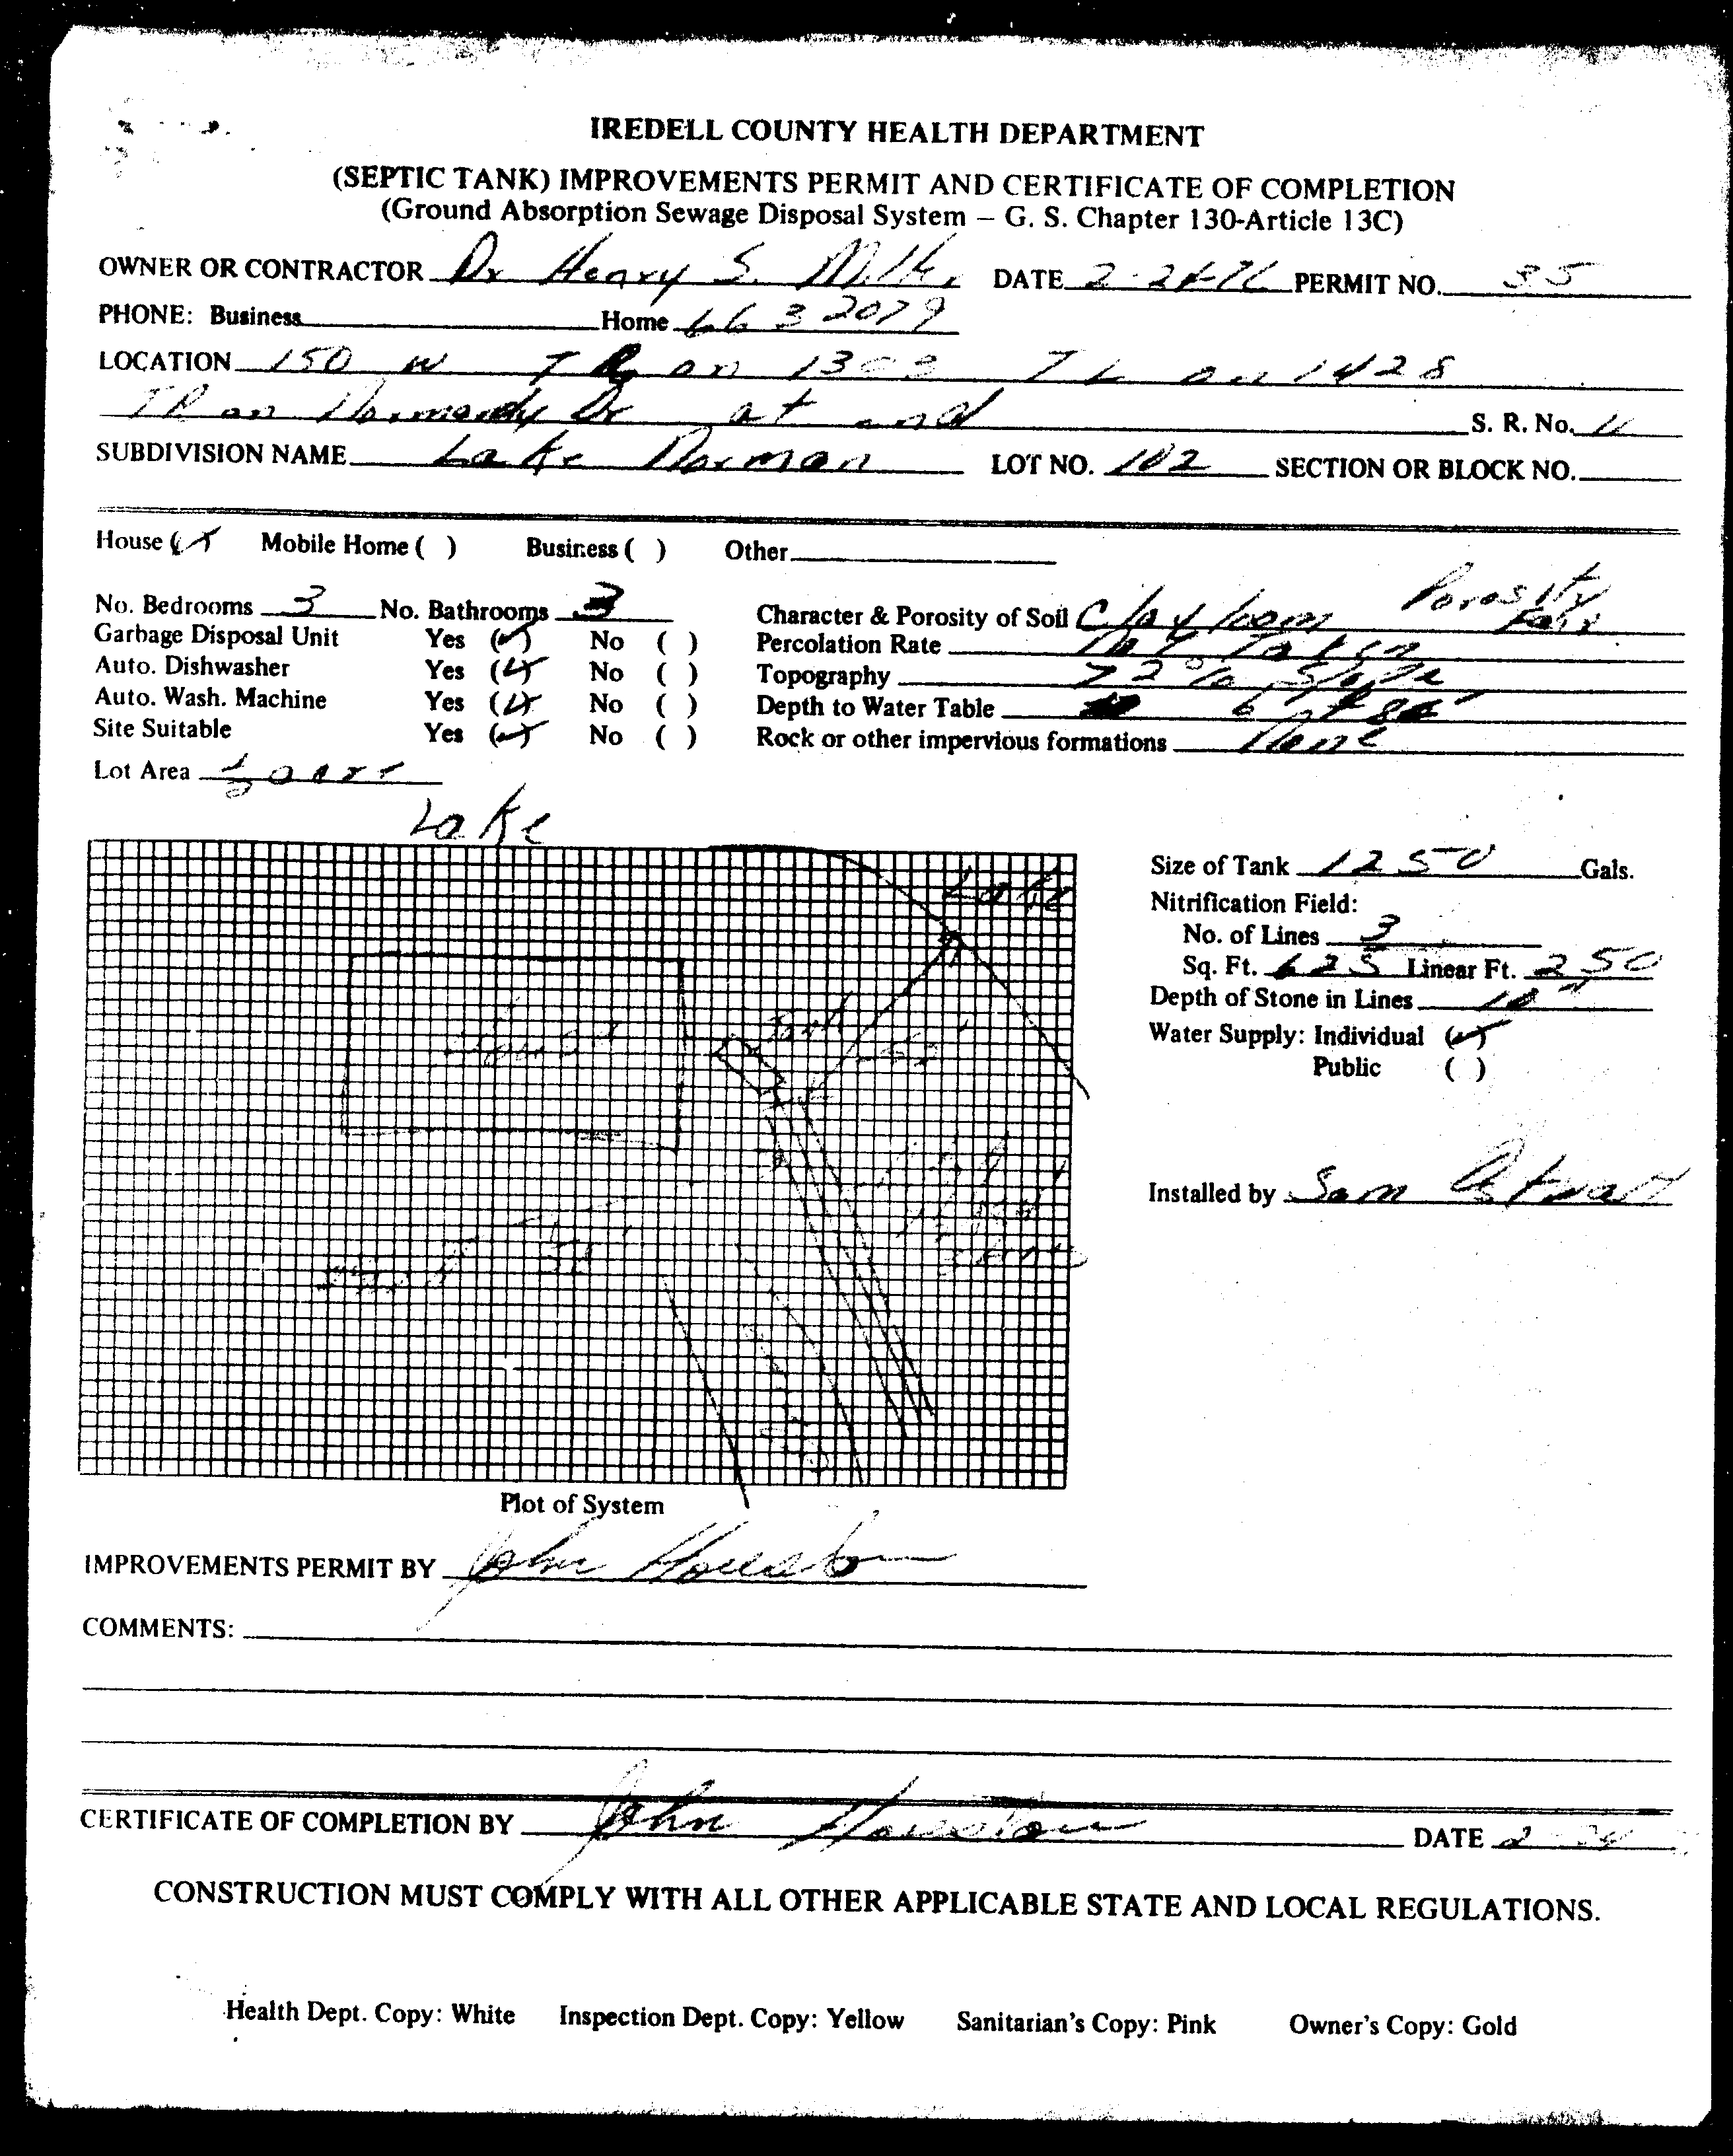 IREDELL COUNTY HEALTH DEPARTMENT
(SEPTIC TANK) IMPROVEMENTS PERMIT AND CERTIFICATE OF COMPLETION
(Ground Absorption Sewage Disposal System – G. S. Chapter 130-Article 13C)
OWNER OR CONTRACTOR Dr Henry S. Miller DATE 2-24-76 PERMIT NO. 35
PHONE: Business Home 663 2079
LOCATION 150 W T R on 1303 T L on 1428
TR on Normandy Dr at end S. R. No.
SUBDIVISION NAME Lake Norman LOT NO. 102 SECTION OR BLOCK NO.
House (✓) Mobile Home ( ) Business ( ) Other
No. Bedrooms 3 No. Bathrooms 3 Character & Porosity of Soil Clay loam Porosity Fair
Garbage Disposal Unit Yes (✓) No ( ) Percolation Rate Not Taken
Auto. Dishwasher Yes (✓) No ( ) Topography 72% Slope
Auto. Wash. Machine Yes (✓) No ( ) Depth to Water Table 6
Site Suitable Yes (✓) No ( ) Rock or other impervious formations None
Lot Area 1/2 acre
Lake
Lake
House
Tank
Size of Tank 1250 Gals.
Nitrification Field:
No. of Lines 3
Sq. Ft. 625 Linear Ft. 250
Depth of Stone in Lines 10"
Water Supply: Individual (✓)
Public ( )
Installed by Sam
Plot of System
IMPROVEMENTS PERMIT BY John Houston
COMMENTS:
CERTIFICATE OF COMPLETION BY John Houston DATE 2 24
CONSTRUCTION MUST COMPLY WITH ALL OTHER APPLICABLE STATE AND LOCAL REGULATIONS.
Health Dept. Copy: White Inspection Dept. Copy: Yellow Sanitarian's Copy: Pink Owner's Copy: Gold